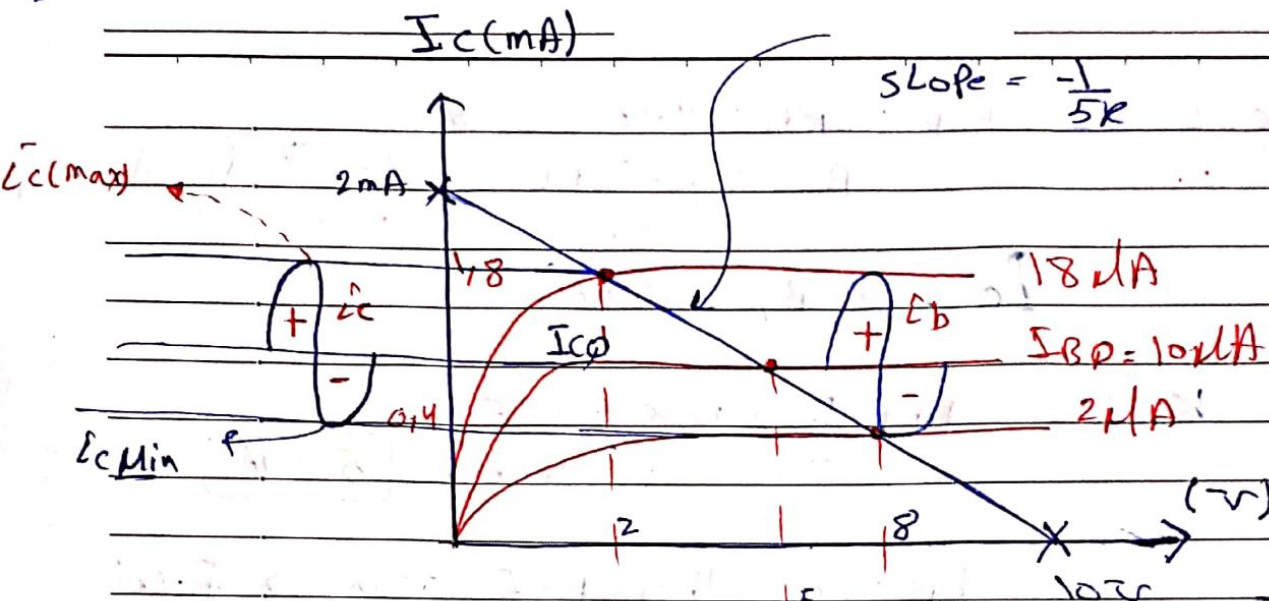 Ic (mA)
slope = -1/5k
ic(max)
2mA
1,8
18 μA
+ ic
+ ib
ICQ
IBQ = 10μA
-
-
0,4
2μA
ic Min
(v)
2
8
5
10v